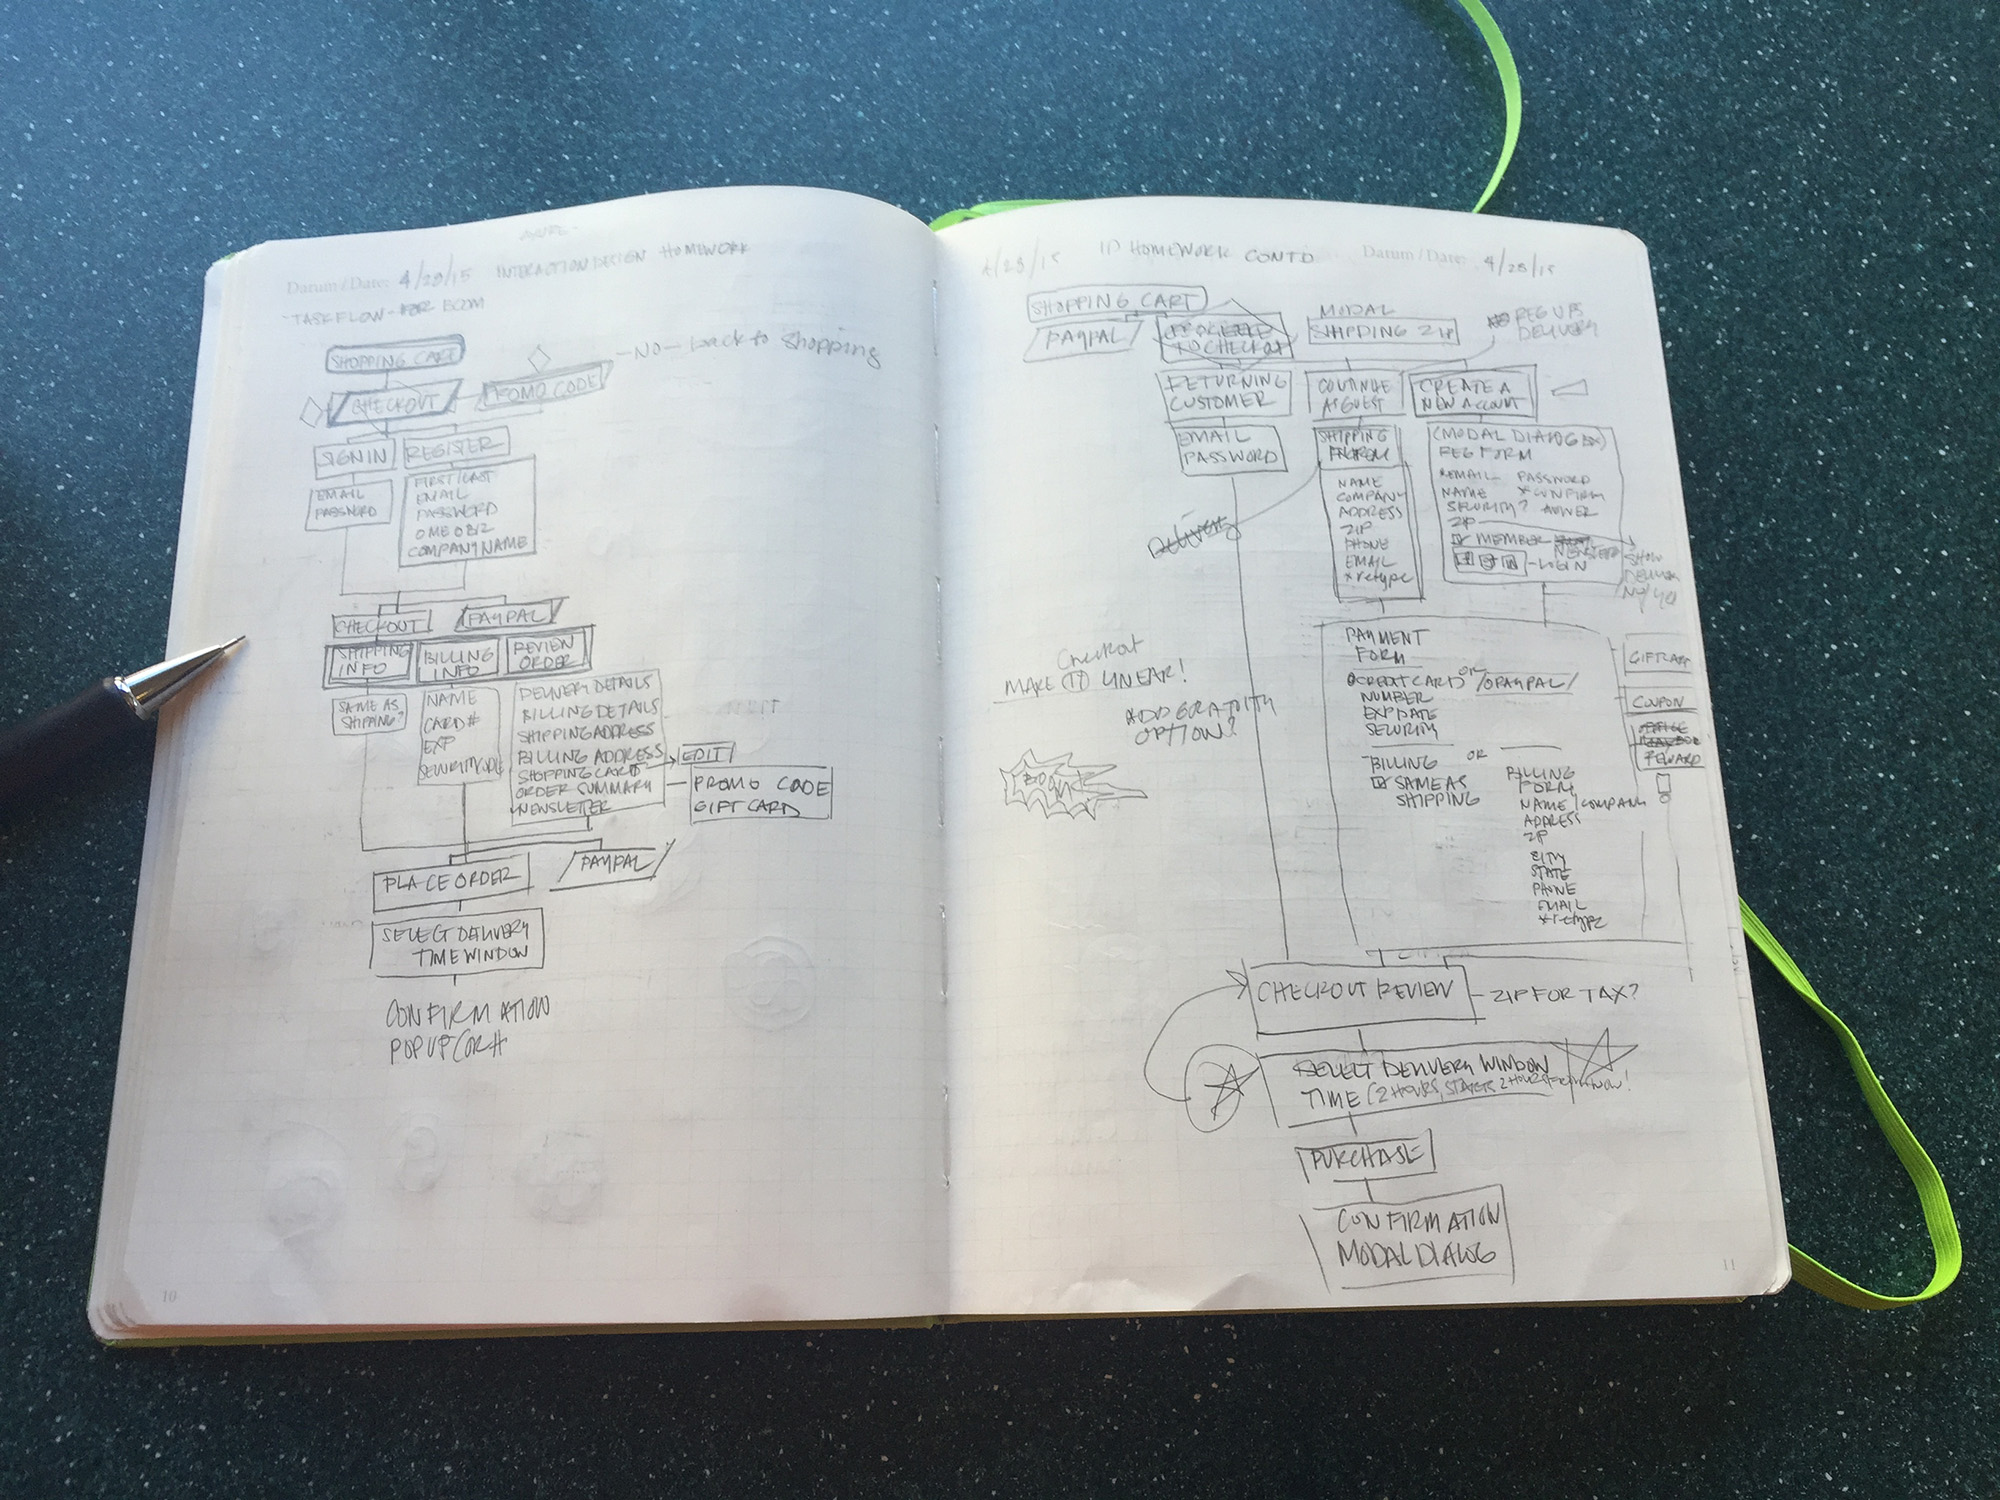 Datum / Date: 4/28/15 INTERACTION DESIGN HOMEWORK
TASKFLOW - FOR ECOM
SHOPPING CART
-NO- back to shopping
CHECKOUT
PROMO CODE
SIGN IN
REGISTER
EMAIL
PASSWORD
FIRST/LAST
EMAIL
PASSWORD
COMPANY NAME
CHECKOUT
PAYPAL
SHIPPING
INFO
BILLING
INFO
REVIEW
ORDER
SAME AS
SHIPPING?
NAME
CARD#
EXP
DELIVERY DETAILS
BILLING DETAILS
SHIPPING ADDRESS
BILLING ADDRESS
SHOPPING CARD
ORDER SUMMARY
NEWSLETTER
EDIT
PROMO CODE
GIFT CARD
PLACE ORDER
PAYPAL
SELECT DELIVERY
TIME WINDOW
CONFIRMATION
POPUP
10
4/28/15 ID HOMEWORK CONTD Datum / Date: 4/28/15
SHOPPING CART
PAYPAL
PROCEED
TO CHECKOUT
MODAL
SHIPPING ZIP
DELIVERY
RETURNING
CUSTOMER
CONTINUE
AS GUEST
CREATE A
NEW ACCOUNT
EMAIL
PASSWORD
SHIPPING
NAME
COMPANY
ADDRESS
ZIP
PHONE
EMAIL
*retype
(MODAL DIALOG BOX)
REG FORM
EMAIL PASSWORD
NAME *CONFIRM
SECURITY? ANSWER
ZIP
MEMBER
-LOGIN
SHOW
Delivery
Checkout
MAKE IT LINEAR!
ADD GRATUITY
OPTION?
PAYMENT
FORM
CREDIT CARD OR /PAYPAL/
NUMBER
EXP DATE
SECURITY
BILLING OR
SAME AS
SHIPPING
BILLING
FORM
NAME/COMPANY
ADDRESS
ZIP
CITY
STATE
PHONE
EMAIL
*retype
COUPON
REWARD
CHECKOUT REVIEW - ZIP FOR TAX?
SELECT DELIVERY WINDOW
TIME (2 HOURS, STARTS 2 HOURS FROM NOW!
PURCHASE
CONFIRMATION
MODAL DIALOG
11